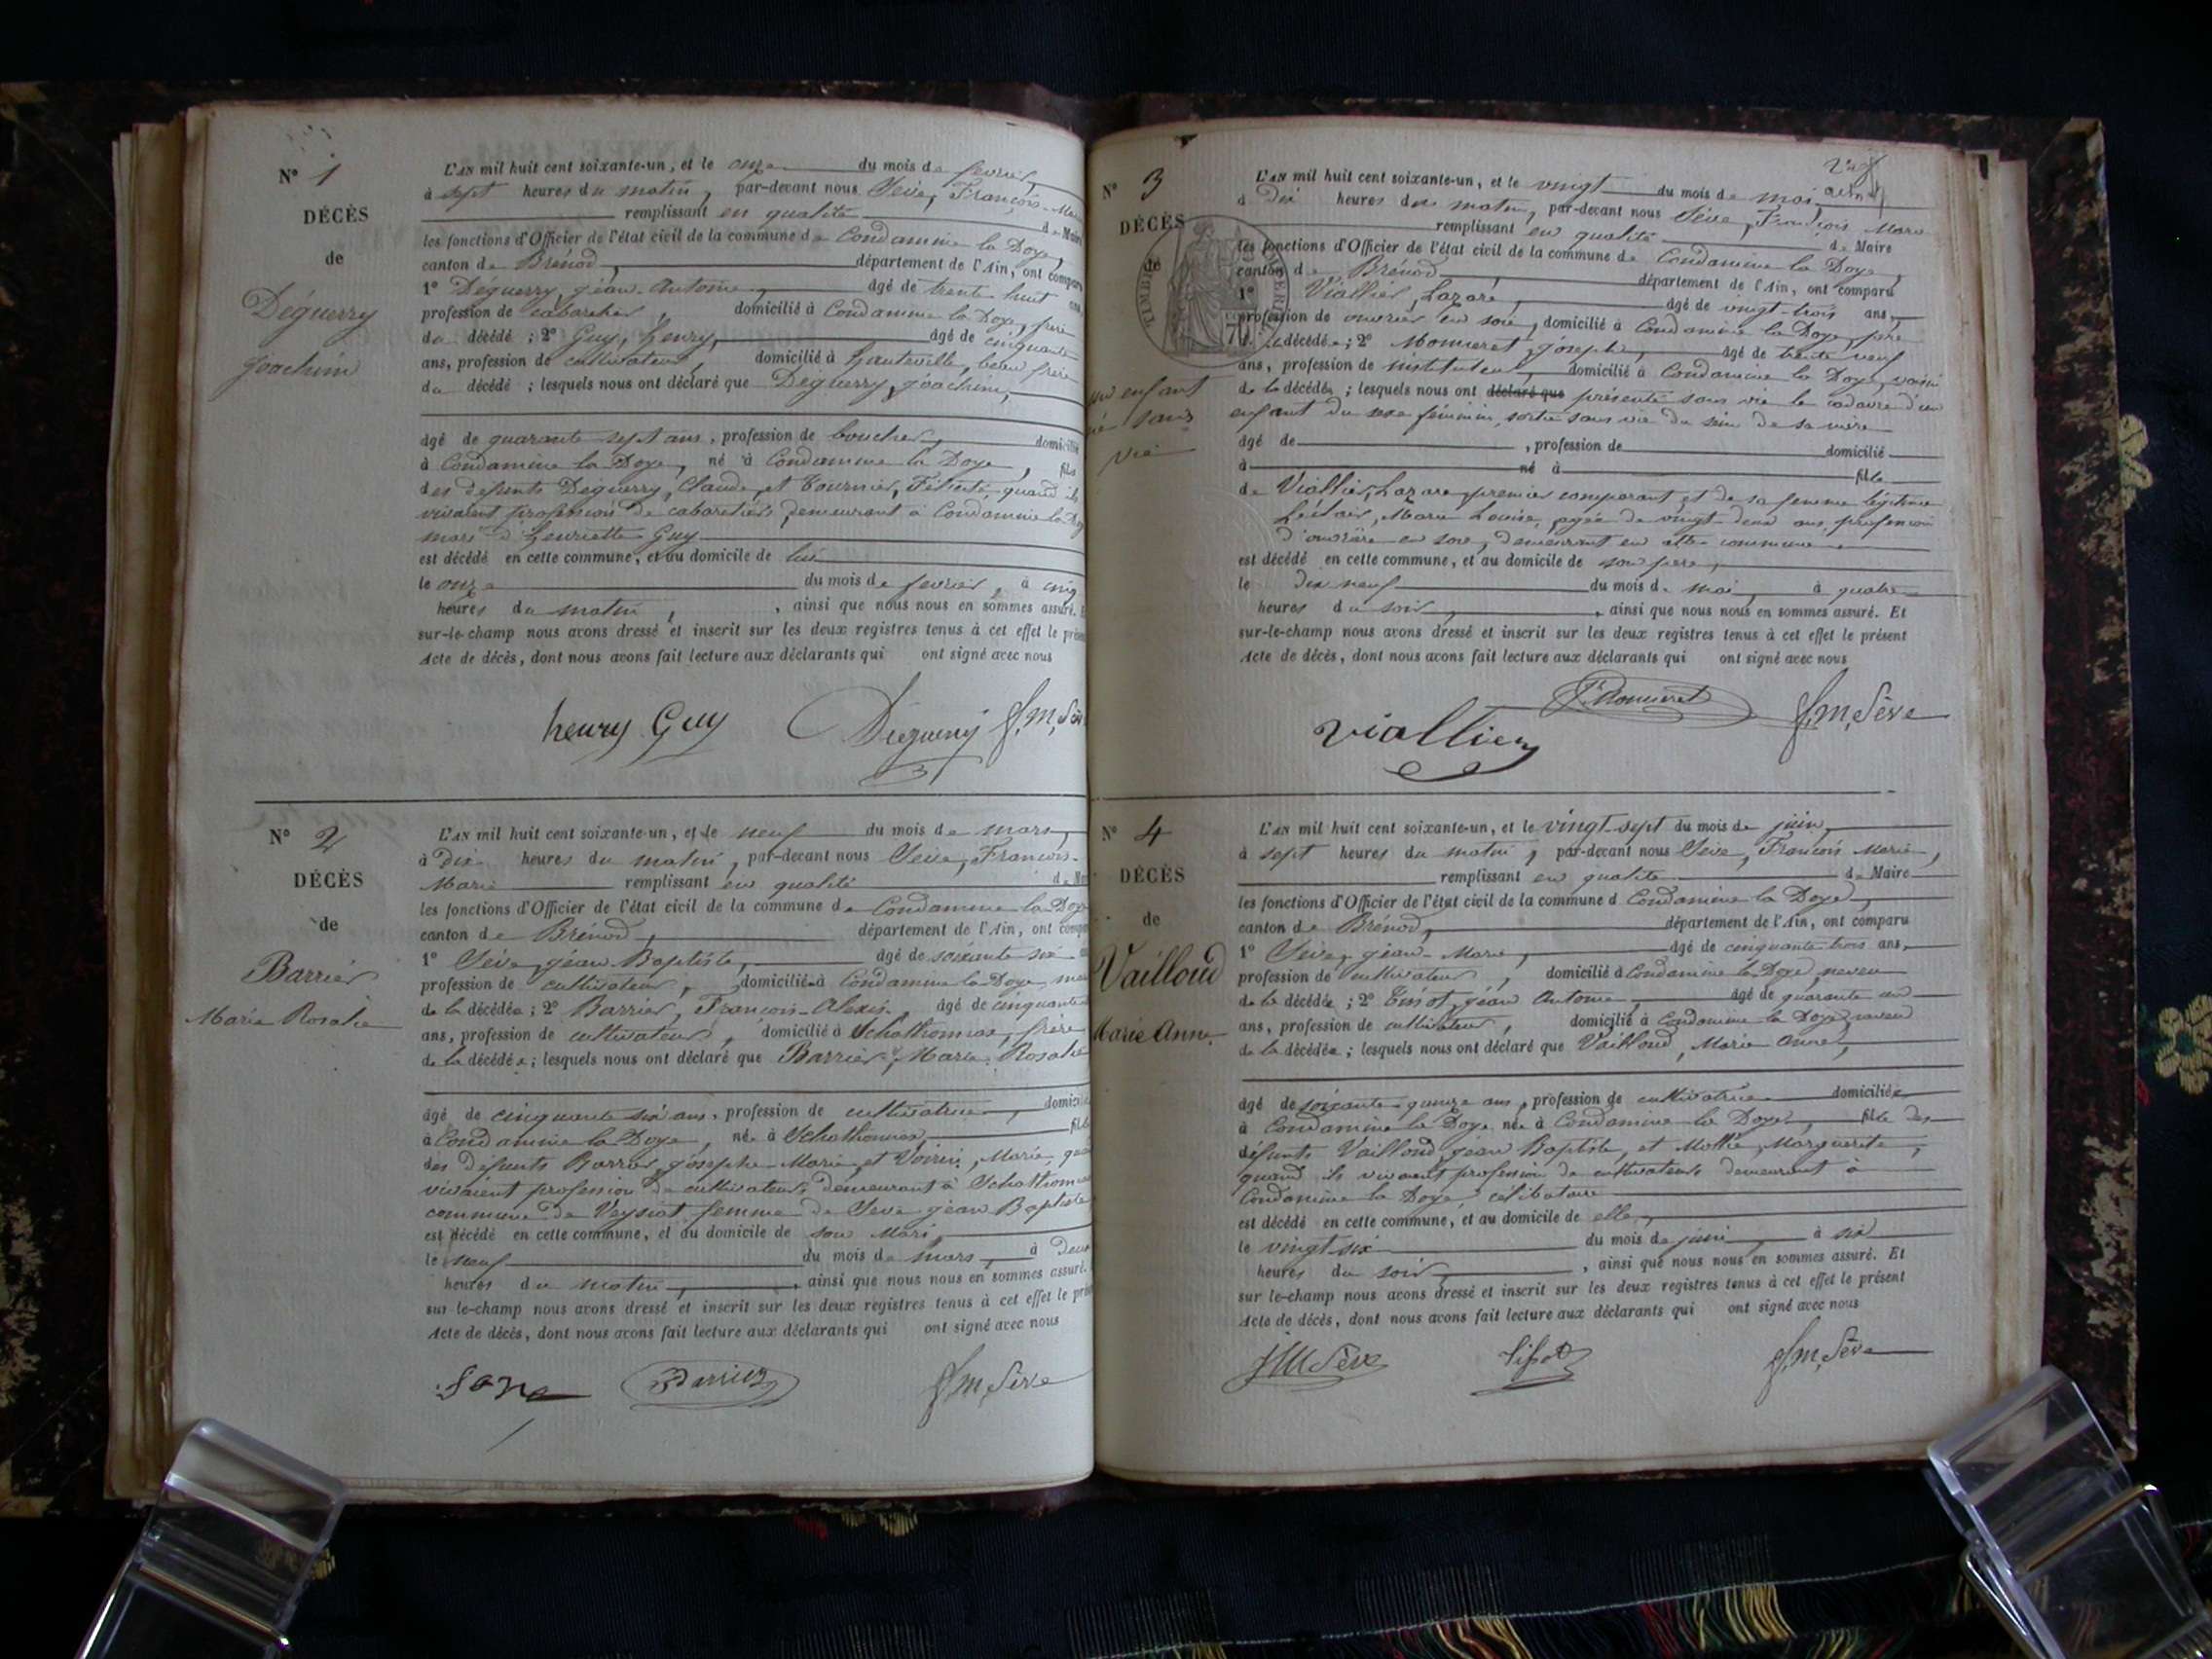 N° 1
DÉCÈS
de
Déguerry
Joachim
L'AN mil huit cent soixante-un, et le onze du mois de février,
à sept heures du matin, par-devant nous Sève, François-
remplissant en qualité de Maire
les fonctions d'Officier de l'état civil de la commune de Condamine la Doye,
canton de Brénod, département de l'Ain, ont comparu
1° Déguerry, jean-Antoine, âgé de trente huit ans,
profession de cabaretier, domicilié à Condamine la Doye, frère
du décédé ; 2° Guy, henry, âgé de cinquante
ans, profession de cultivateur, domicilié à hauteville, beau frère
du décédé ; lesquels nous ont déclaré que Déguerry, joachim,
âgé de quarante-sept ans, profession de boucher, domicilié
à Condamine la Doye, né à Condamine la Doye, fils
des défunts Déguerry, Claude et Tournier, Félicité, quand ils
vivaient profession de cabaretiers, demeurant à Condamine la Doye
mari d'henriette Guy
est décédé en cette commune, et au domicile de lui
le onze du mois de février, à cinq
heures du matin, ainsi que nous nous en sommes assuré. Et
sur-le-champ nous avons dressé et inscrit sur les deux registres tenus à cet effet le présent
Acte de décès, dont nous avons fait lecture aux déclarants qui ont signé avec nous
henry Guy Déguerry f. m. Sève
N° 2
DÉCÈS
de
Barrier
Marie Rosalie
L'AN mil huit cent soixante-un, et le neuf du mois de mars,
à Dix heures du matin, par-devant nous Sève, François-
Marie remplissant en qualité de
les fonctions d'Officier de l'état civil de la commune de Condamine la Doye
canton de Brénod, département de l'Ain, ont comparu
1° Sève, jean Baptiste, âgé de soixante six
profession de cultivateur, domicilié à Condamine la Doye,
de la décédée ; 2° Barrier, François-Alexis âgé de cinquante
ans, profession de cultivateur, domicilié à frère
de la décédée ; lesquels nous ont déclaré que Barrier, Marie Rosalie
âgé de cinquante six ans, profession de cultivatrice, domiciliée
à Condamine la Doye, née à fille
des Défunts Barrier, josephe-Marie et Marie,
vivaient profession de cultivateurs, demeurant à
commune de Veyziat, femme de Sève jean Baptiste
est décédé en cette commune, et au domicile de son Mari
le neuf du mois de mars, à Deux
heures du matin, ainsi que nous nous en sommes assuré.
sur-le-champ nous avons dressé et inscrit sur les deux registres tenus à cet effet le présent
Acte de décès, dont nous avons fait lecture aux déclarants qui ont signé avec nous
Barrier f. m. Sève
N° 3
DÉCÈS
de
un enfant
né sans
vie
L'AN mil huit cent soixante-un, et le vingt du mois de mai
à Dix heures du matin, par-devant nous Sève, François Marie
remplissant en qualité de Maire
les fonctions d'Officier de l'état civil de la commune de Condamine la Doye,
canton de Brénod, département de l'Ain, ont comparu
1° Viallier, Lazare, âgé de vingt-trois ans,
profession de ouvrier en soie, domicilié à Condamine la Doye, père
décédée ; 2° Monneret, joseph, âgé de trente neuf
ans, profession de instituteur, domicilié à Condamine la Doye, voisin
de la décédée ; lesquels nous ont déclaré que présenté sans vie le cadavre d'un
enfant du sexe féminin, sortie sans vie du sein de sa mère
âgé de , profession de domicilié
à né à fille
de Viallier, Lazare, premier comparant, et de sa femme légitime
Marie Louise, agée de vingt-deux ans, profession
d'ouvrière en soie, demeurant en cette commune
est décédé en cette commune, et au domicile de son père,
le dix neuf du mois de mai, à quatre
heures du soir, ainsi que nous nous en sommes assuré. Et
sur-le-champ nous avons dressé et inscrit sur les deux registres tenus à cet effet le présent
Acte de décès, dont nous avons fait lecture aux déclarants qui ont signé avec nous
Viallier Monneret f. m. Sève
N° 4
DÉCÈS
de
Vailloud
Marie Anne
L'AN mil huit cent soixante-un, et le vingt-sept du mois de juin,
à sept heures du matin, par-devant nous Sève, François Marie,
remplissant en qualité de Maire
les fonctions d'Officier de l'état civil de la commune d Condamine la Doye,
canton de Brénod, département de l'Ain, ont comparu
1° Sève, jean-Marie, âgé de cinquante-trois ans,
profession de cultivateur, domicilié à Condamine la Doye, neveu
de la décédée ; 2° Tissot, jean Antoine, âgé de quarante un
ans, profession de cultivateur, domicilié à Condamine la Doye, neveu
de la décédée ; lesquels nous ont déclaré que Vailloud, Marie Anne,
âgé de soixante-quinze ans, profession de cultivatrice domiciliée
à Condamine la Doye, née à Condamine la Doye, fille des
défunts Vailloud, jean Baptiste, et Marguerite,
quand ils vivaient profession de cultivateurs demeurant à
Condamine la Doye, célibataire
est décédé en cette commune, et au domicile de elle,
le vingt six du mois de juin, à six
heures du soir, ainsi que nous nous en sommes assuré. Et
sur le-champ nous avons dressé et inscrit sur les deux registres tenus à cet effet le présent
Acte de décès, dont nous avons fait lecture aux déclarants qui ont signé avec nous
JM Sève Tissot f. m. Sève